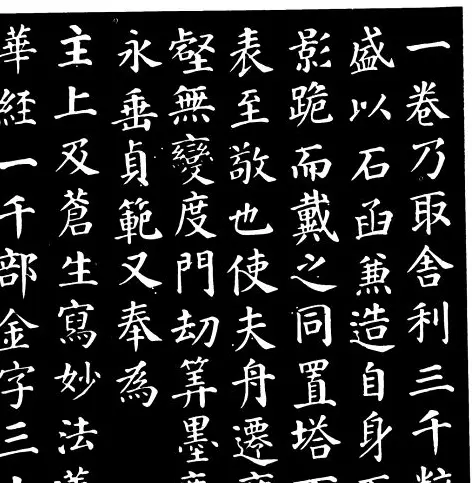 一卷乃取舎利三千粒
盛以石函兼造自身
影跪而戴之同置塔
表至敬也使夫舟遷
壑無變度門劫筭墨
永垂貞範又奉為
主上及蒼生寫妙法
華経一千部金字三